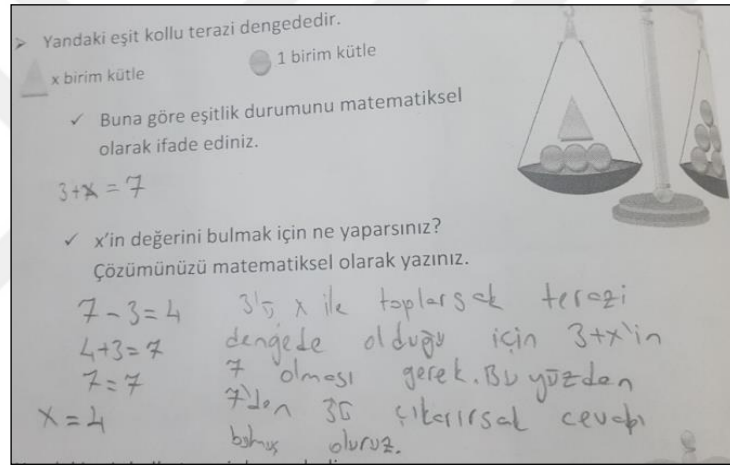 Yandaki eşit kollu terazi dengededir.
x birim kütle
1 birim kütle
Buna göre eşitlik durumunu matematiksel
olarak ifade ediniz.
3+x=7
x'in değerini bulmak için ne yaparsınız?
Çözümünüzü matematiksel olarak yazınız.
7-3=4
4+3=7
7=7
x=4
3'ü x ile toplarsak terazi
dengede olduğu için 3+x'in
7 olması gerek. Bu yüzden
7'den 3ü çıkarırsak cevabı
bulmuş oluruz.